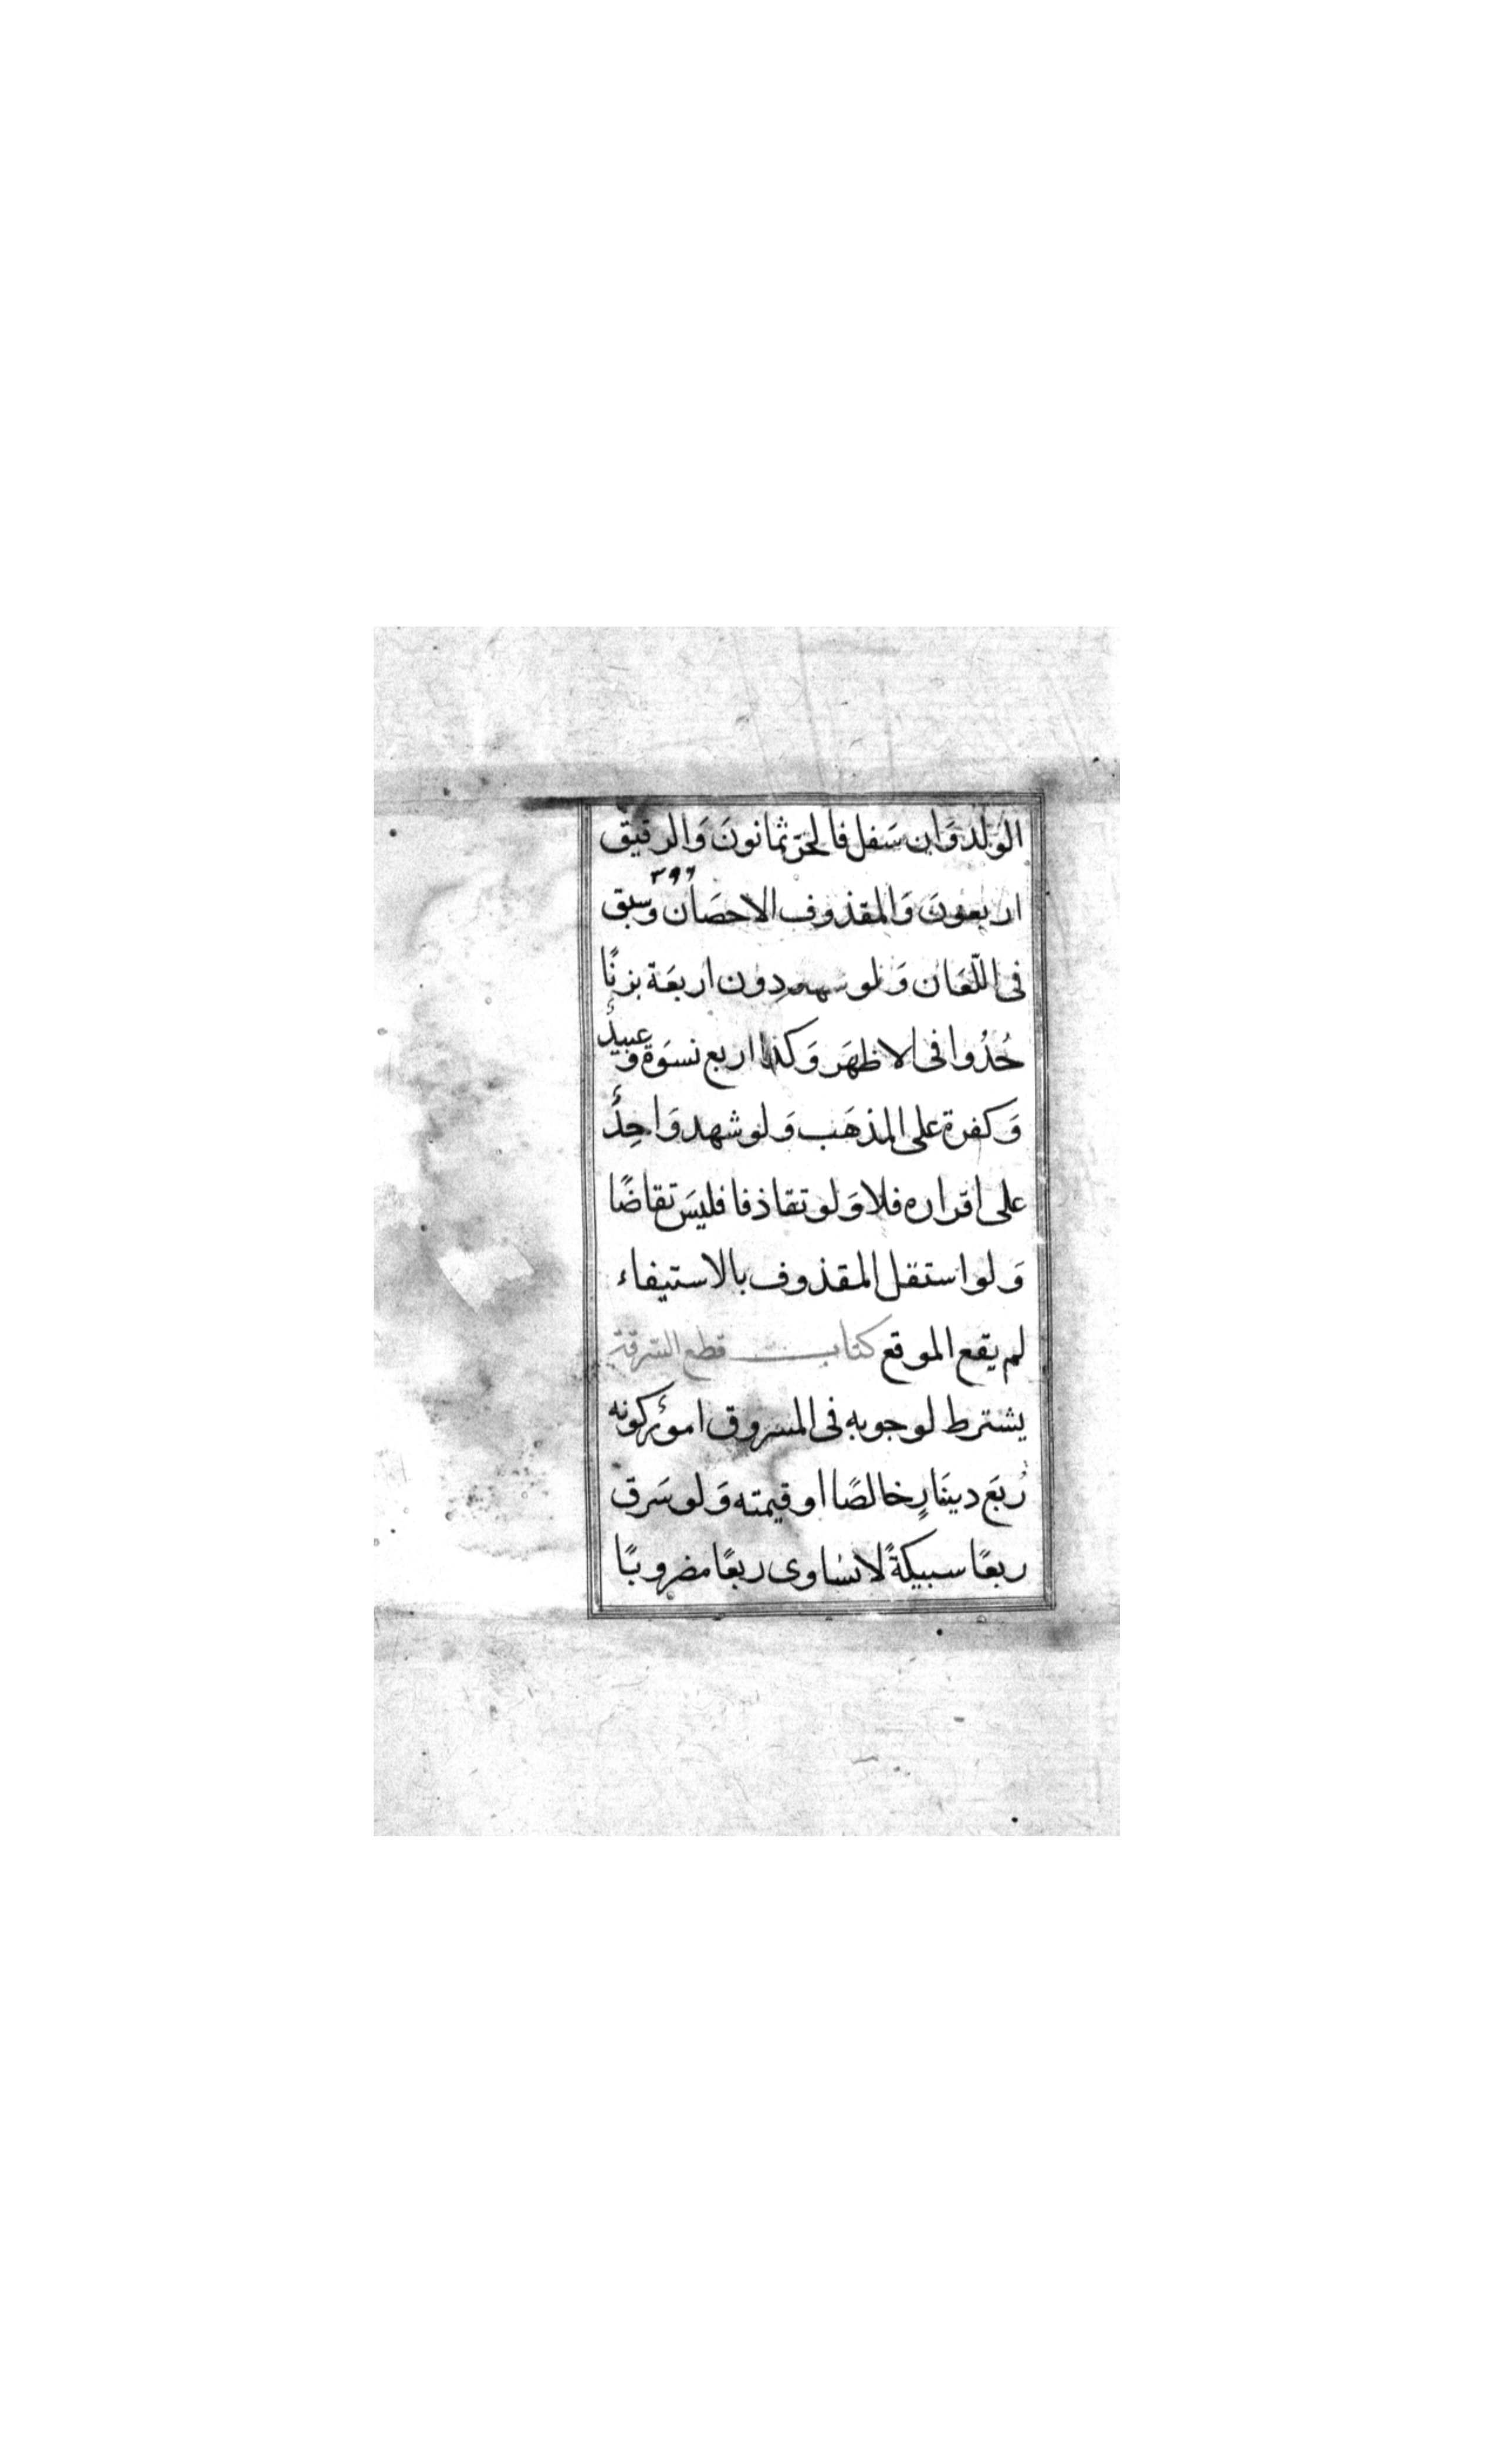 الوَلد وَان سَفل فالحرّ ثمانونَ وَالرقيق
٣٩٦
اربعونَ وَالمقذوف الاحصَان وسبق
فى اللّعَان وَلو شهد دون اربعَة بزنًا
حُدُوا فى الاظهَر وَكذا اربع نسوَة وعبيدٌ
وَكفرة على المذهَب وَلو شهد وَاحِدٌ
على اقراره فلا وَلو تقاذفا فليسَ تقاضًا
وَلو استقل المقذوف بالاستيفاء
لم يقع الموقع كتاب قطع السّرقة
يشترط لوجوبه فى المسروق امورٌ كونه
رُبعَ دينَارٍ خالصًا او قيمته وَلو سَرق
ربعًا سبيكةً لا تساوى ربعًا مضروبًا